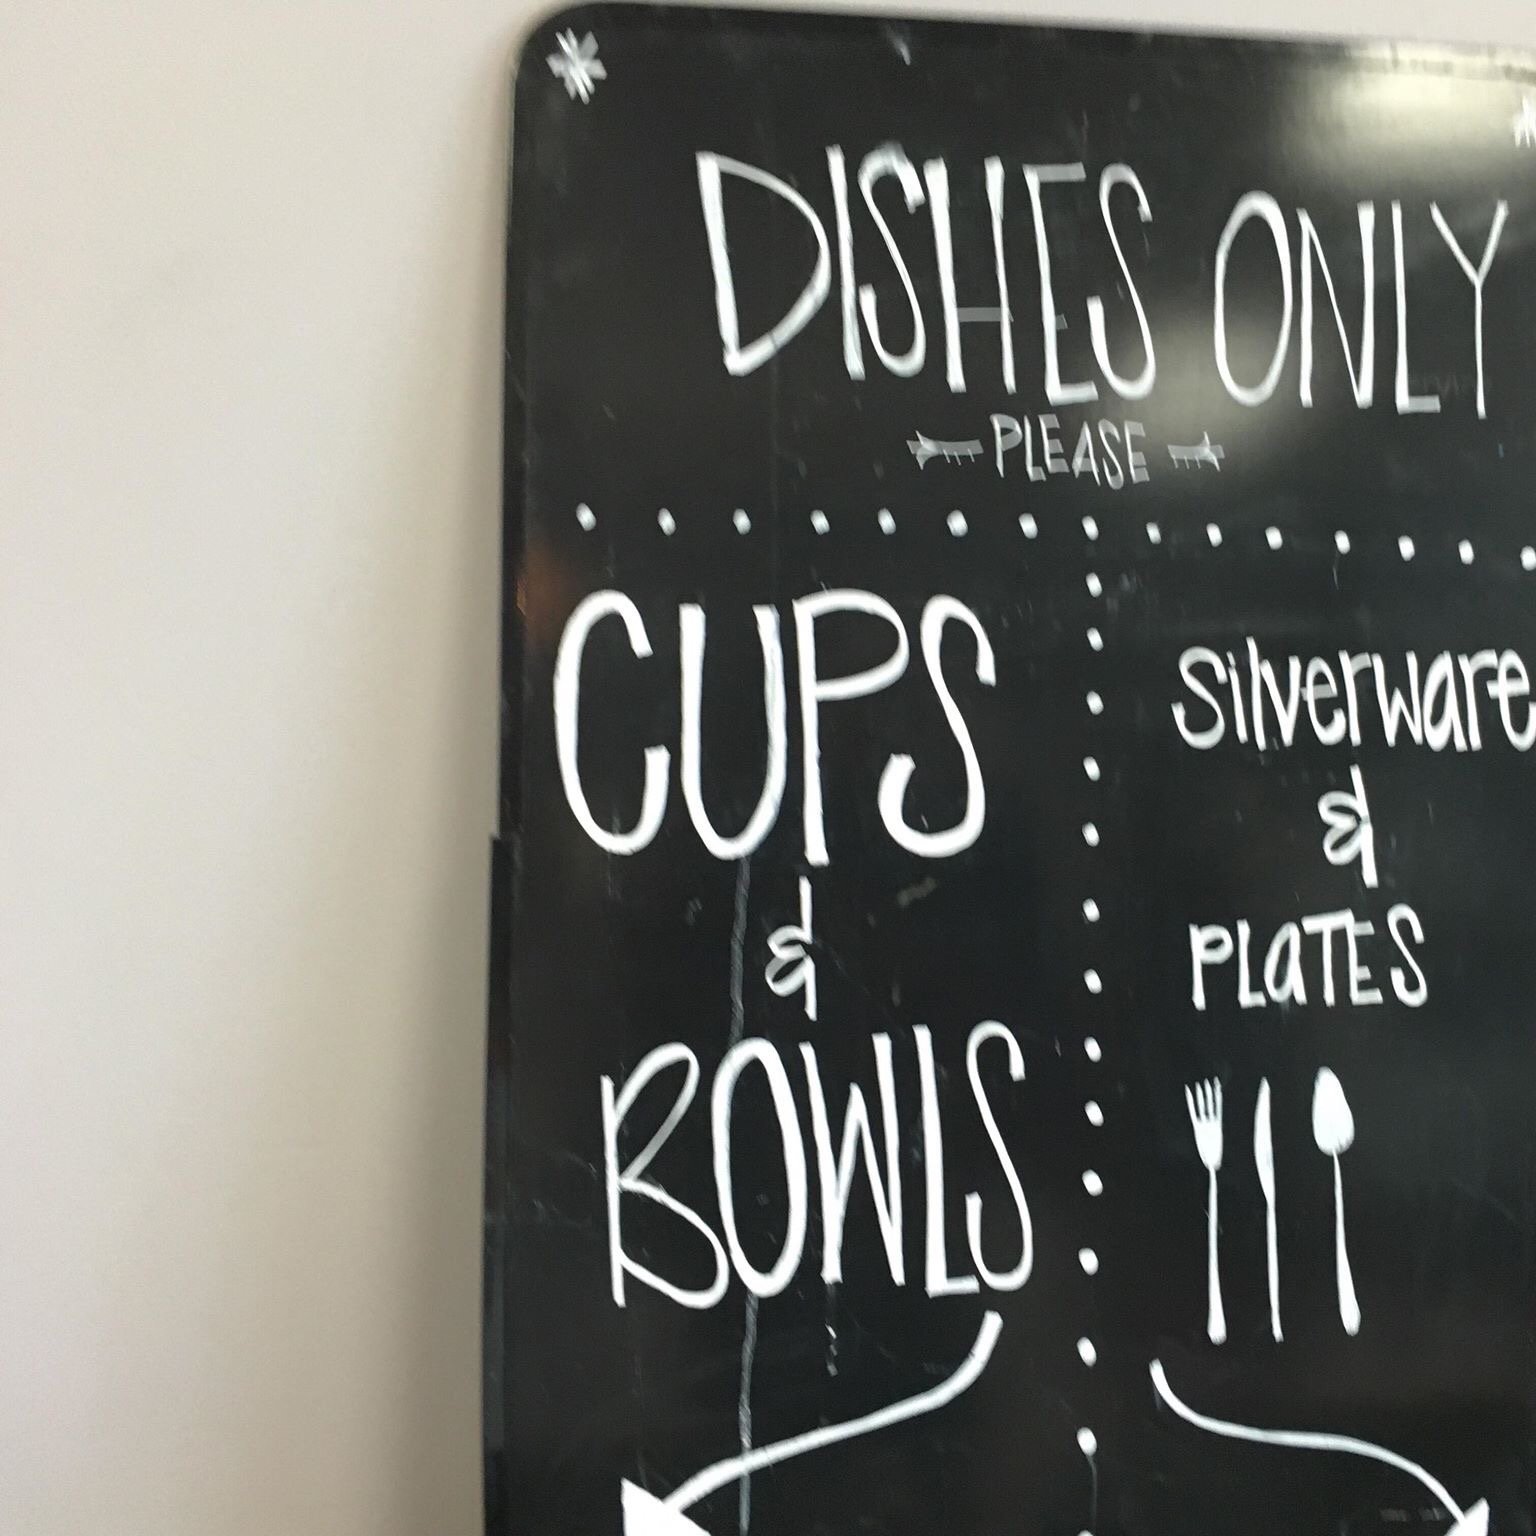 DISHES ONLY
PLEASE
CUPS
&
BOWLS
Silverware
&
PLaTES